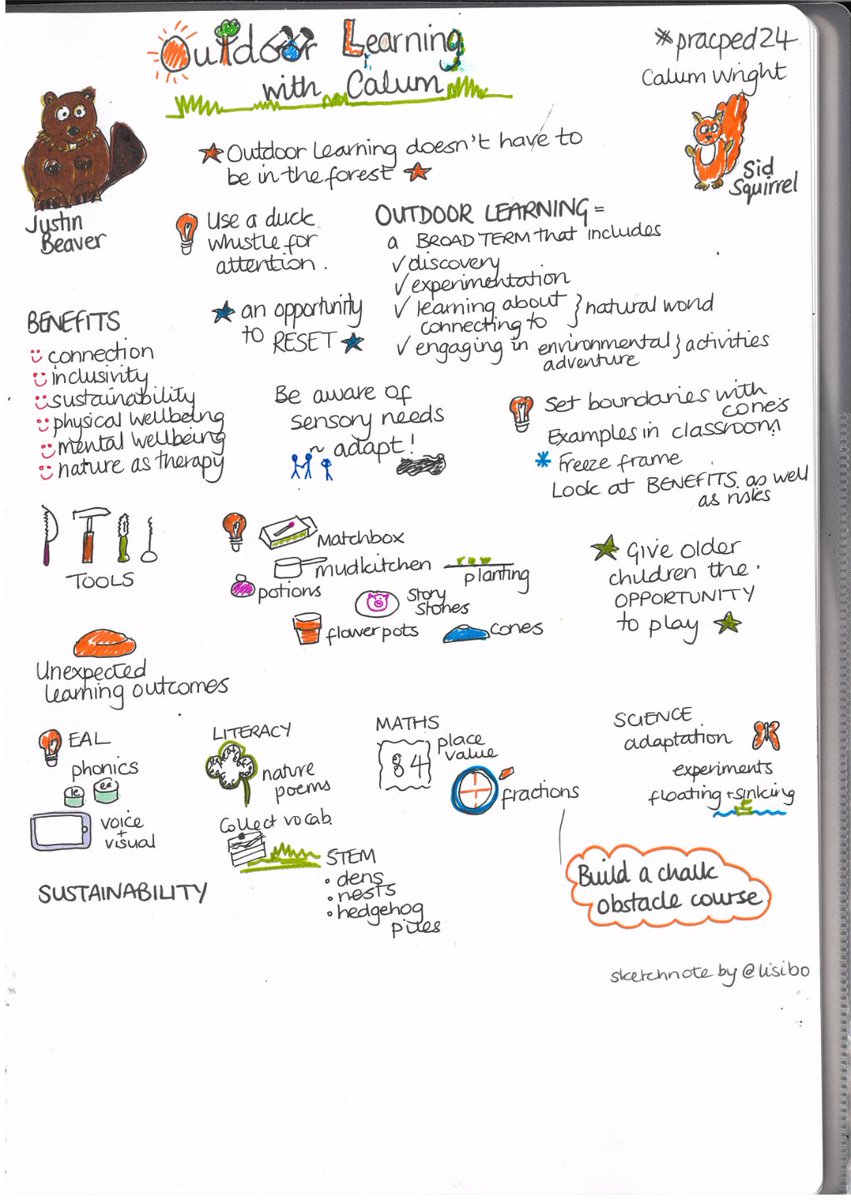 Outdoor Learning
with Calum
#pracped24
Calum Wright
Justin
Beaver
Sid
Squirrel
Outdoor Learning doesn't have to
be in the forest
Use a duck
whistle for
attention.
OUTDOOR LEARNING =
a BROAD TERM that includes
✓ discovery
✓ experimentation
✓ learning about } natural world
connecting to
✓ engaging in environmental } activities
adventure
an opportunity
to RESET
BENEFITS
connection
inclusivity
sustainability
physical wellbeing
mental wellbeing
nature as therapy
Be aware of
sensory needs
~ adapt!
Set boundaries with
cones
Examples in classroom
* Freeze frame
Look at BENEFITS as well
as risks
TOOLS
Matchbox
mudkitchen
planting
potions
Story
Stones
flowerpots
cones
Give older
children the
OPPORTUNITY
to play
Unexpected
learning outcomes
EAL
phonics
ee
voice
+
visual
LITERACY
nature
poems
Collect vocab
MATHS
84
place
value
fractions
SCIENCE
adaptation
experiments
floating + sinking
STEM
• dens
• nests
• hedgehog
pites
SUSTAINABILITY
Build a chalk
obstacle course
sketchnote by @lisibo